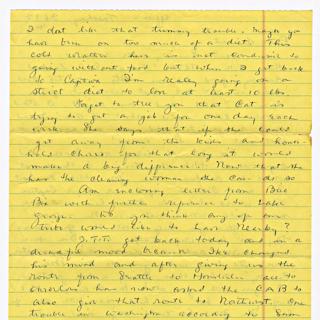 I dont like that tummy trouble. maybe you
have been on too much of a diet. This
cold weather here is not conducive to
going without food but when I get back
to Captiva I'm really going on a
strict diet to lose at least 10 lbs.
Forgot to tell you that Cat is
trying to get a job for one day each
week. She says that if she could
get away from the kids and house-
hold chores for that long it would
make a big difference. Now that she
has the cleaning woman she can do so
Am enclosing letter from Bae
Bae with further reference to Lake
George. Do you think any of our
tribe would like to have nearby?
J.T.T. got back today and in a
dreadful mood because Ike changed
his mind and after giving us the
route from Seattle to Honolulu
ourselves has now asked the C.A.B to
also give that route to Northwest. One
trouble in Washington according to Sam